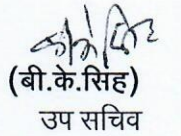 (बी.के.सिह)
उप सचिव